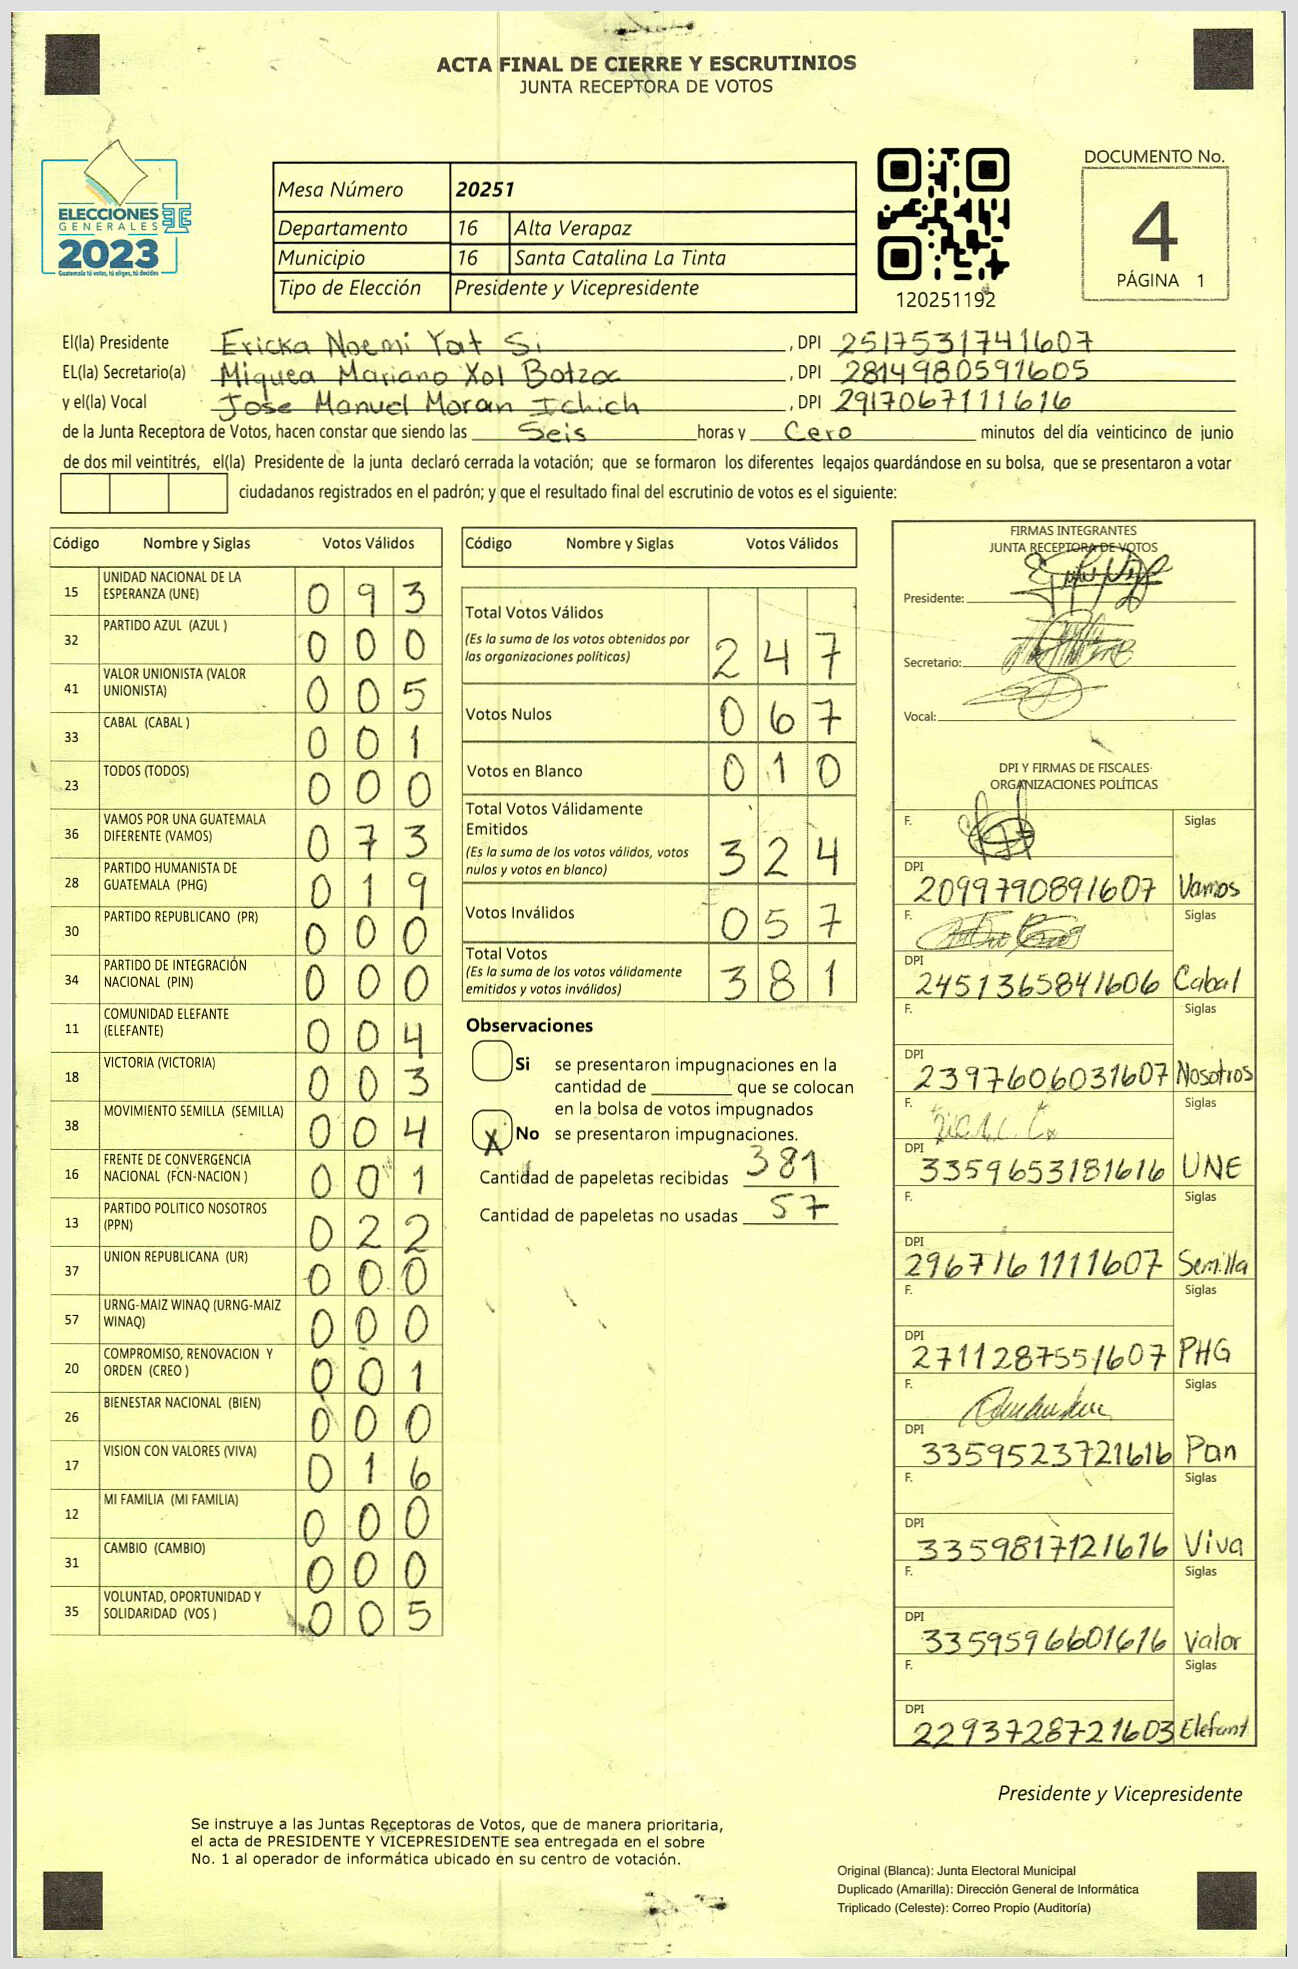 ACTA FINAL DE CIERRE Y ESCRUTINIOS
JUNTA RECEPTORA DE VOTOS
ELECCIONES
GENERALES
2023
Guatemala tú votas, tú eliges, tú decides
Mesa Número 20251
Departamento 16 Alta Verapaz
Municipio 16 Santa Catalina La Tinta
Tipo de Elección Presidente y Vicepresidente
120251192
DOCUMENTO No.
4
PÁGINA 1
El(la) Presidente Ericka Noemi Yat Si, DPI 2517531741607
EL(la) Secretario(a) Miquea Mariano Xol Botzoc, DPI 2814980591605
y el(la) Vocal Jose Manuel Moran Ichich, DPI 2917067111616
de la Junta Receptora de Votos, hacen constar que siendo las Seis horas y Cero minutos del día veinticinco de junio
de dos mil veintitrés, el(la) Presidente de la junta declaró cerrada la votación; que se formaron los diferentes legajos guardándose en su bolsa, que se presentaron a votar
ciudadanos registrados en el padrón; y que el resultado final del escrutinio de votos es el siguiente:
Código Nombre y Siglas Votos Válidos
15 UNIDAD NACIONAL DE LA ESPERANZA (UNE) 093
32 PARTIDO AZUL (AZUL ) 000
41 VALOR UNIONISTA (VALOR UNIONISTA) 005
33 CABAL (CABAL ) 001
23 TODOS (TODOS) 000
36 VAMOS POR UNA GUATEMALA DIFERENTE (VAMOS) 073
28 PARTIDO HUMANISTA DE GUATEMALA (PHG) 019
30 PARTIDO REPUBLICANO (PR) 000
34 PARTIDO DE INTEGRACIÓN NACIONAL (PIN) 000
11 COMUNIDAD ELEFANTE (ELEFANTE) 004
18 VICTORIA (VICTORIA) 003
38 MOVIMIENTO SEMILLA (SEMILLA) 004
16 FRENTE DE CONVERGENCIA NACIONAL (FCN-NACION ) 001
13 PARTIDO POLITICO NOSOTROS (PPN) 022
37 UNION REPUBLICANA (UR) 000
57 URNG-MAIZ WINAQ (URNG-MAIZ WINAQ) 000
20 COMPROMISO, RENOVACION Y ORDEN (CREO ) 001
26 BIENESTAR NACIONAL (BIEN) 000
17 VISION CON VALORES (VIVA) 016
12 MI FAMILIA (MI FAMILIA) 000
31 CAMBIO (CAMBIO) 000
35 VOLUNTAD, OPORTUNIDAD Y SOLIDARIDAD (VOS ) 005
Código Nombre y Siglas Votos Válidos
Total Votos Válidos 247
(Es la suma de los votos obtenidos por
las organizaciones políticas)
Votos Nulos 067
Votos en Blanco 010
Total Votos Válidamente
Emitidos 324
(Es la suma de los votos válidos, votos
nulos y votos en blanco)
Votos Inválidos 057
Total Votos 381
(Es la suma de los votos válidamente
emitidos y votos inválidos)
Observaciones
Si se presentaron impugnaciones en la
cantidad de ________ que se colocan
en la bolsa de votos impugnados
X No se presentaron impugnaciones.
Cantidad de papeletas recibidas 381
Cantidad de papeletas no usadas 57
FIRMAS INTEGRANTES
JUNTA RECEPTORA DE VOTOS
Presidente:
Secretario:
Vocal:
DPI Y FIRMAS DE FISCALES
ORGANIZACIONES POLÍTICAS
F. Siglas
DPI 2099790891607 Vamos
F. Siglas
DPI 2451365841606 Cabal
F. Siglas
DPI 2397606031607 Nosotros
F. Siglas
DPI 3359653181616 UNE
F. Siglas
DPI 2967161111607 Semilla
F. Siglas
DPI 2711287551607 PHG
F. Siglas
DPI 3359523721616 Pan
F. Siglas
DPI 3359817121616 Viva
F. Siglas
DPI 3359596601616 Valor
F. Siglas
DPI 2293728721603 Elefant
Presidente y Vicepresidente
Se instruye a las Juntas Receptoras de Votos, que de manera prioritaria,
el acta de PRESIDENTE Y VICEPRESIDENTE sea entregada en el sobre
No. 1 al operador de informática ubicado en su centro de votación.
Original (Blanca): Junta Electoral Municipal
Duplicado (Amarilla): Dirección General de Informática
Triplicado (Celeste): Correo Propio (Auditoría)